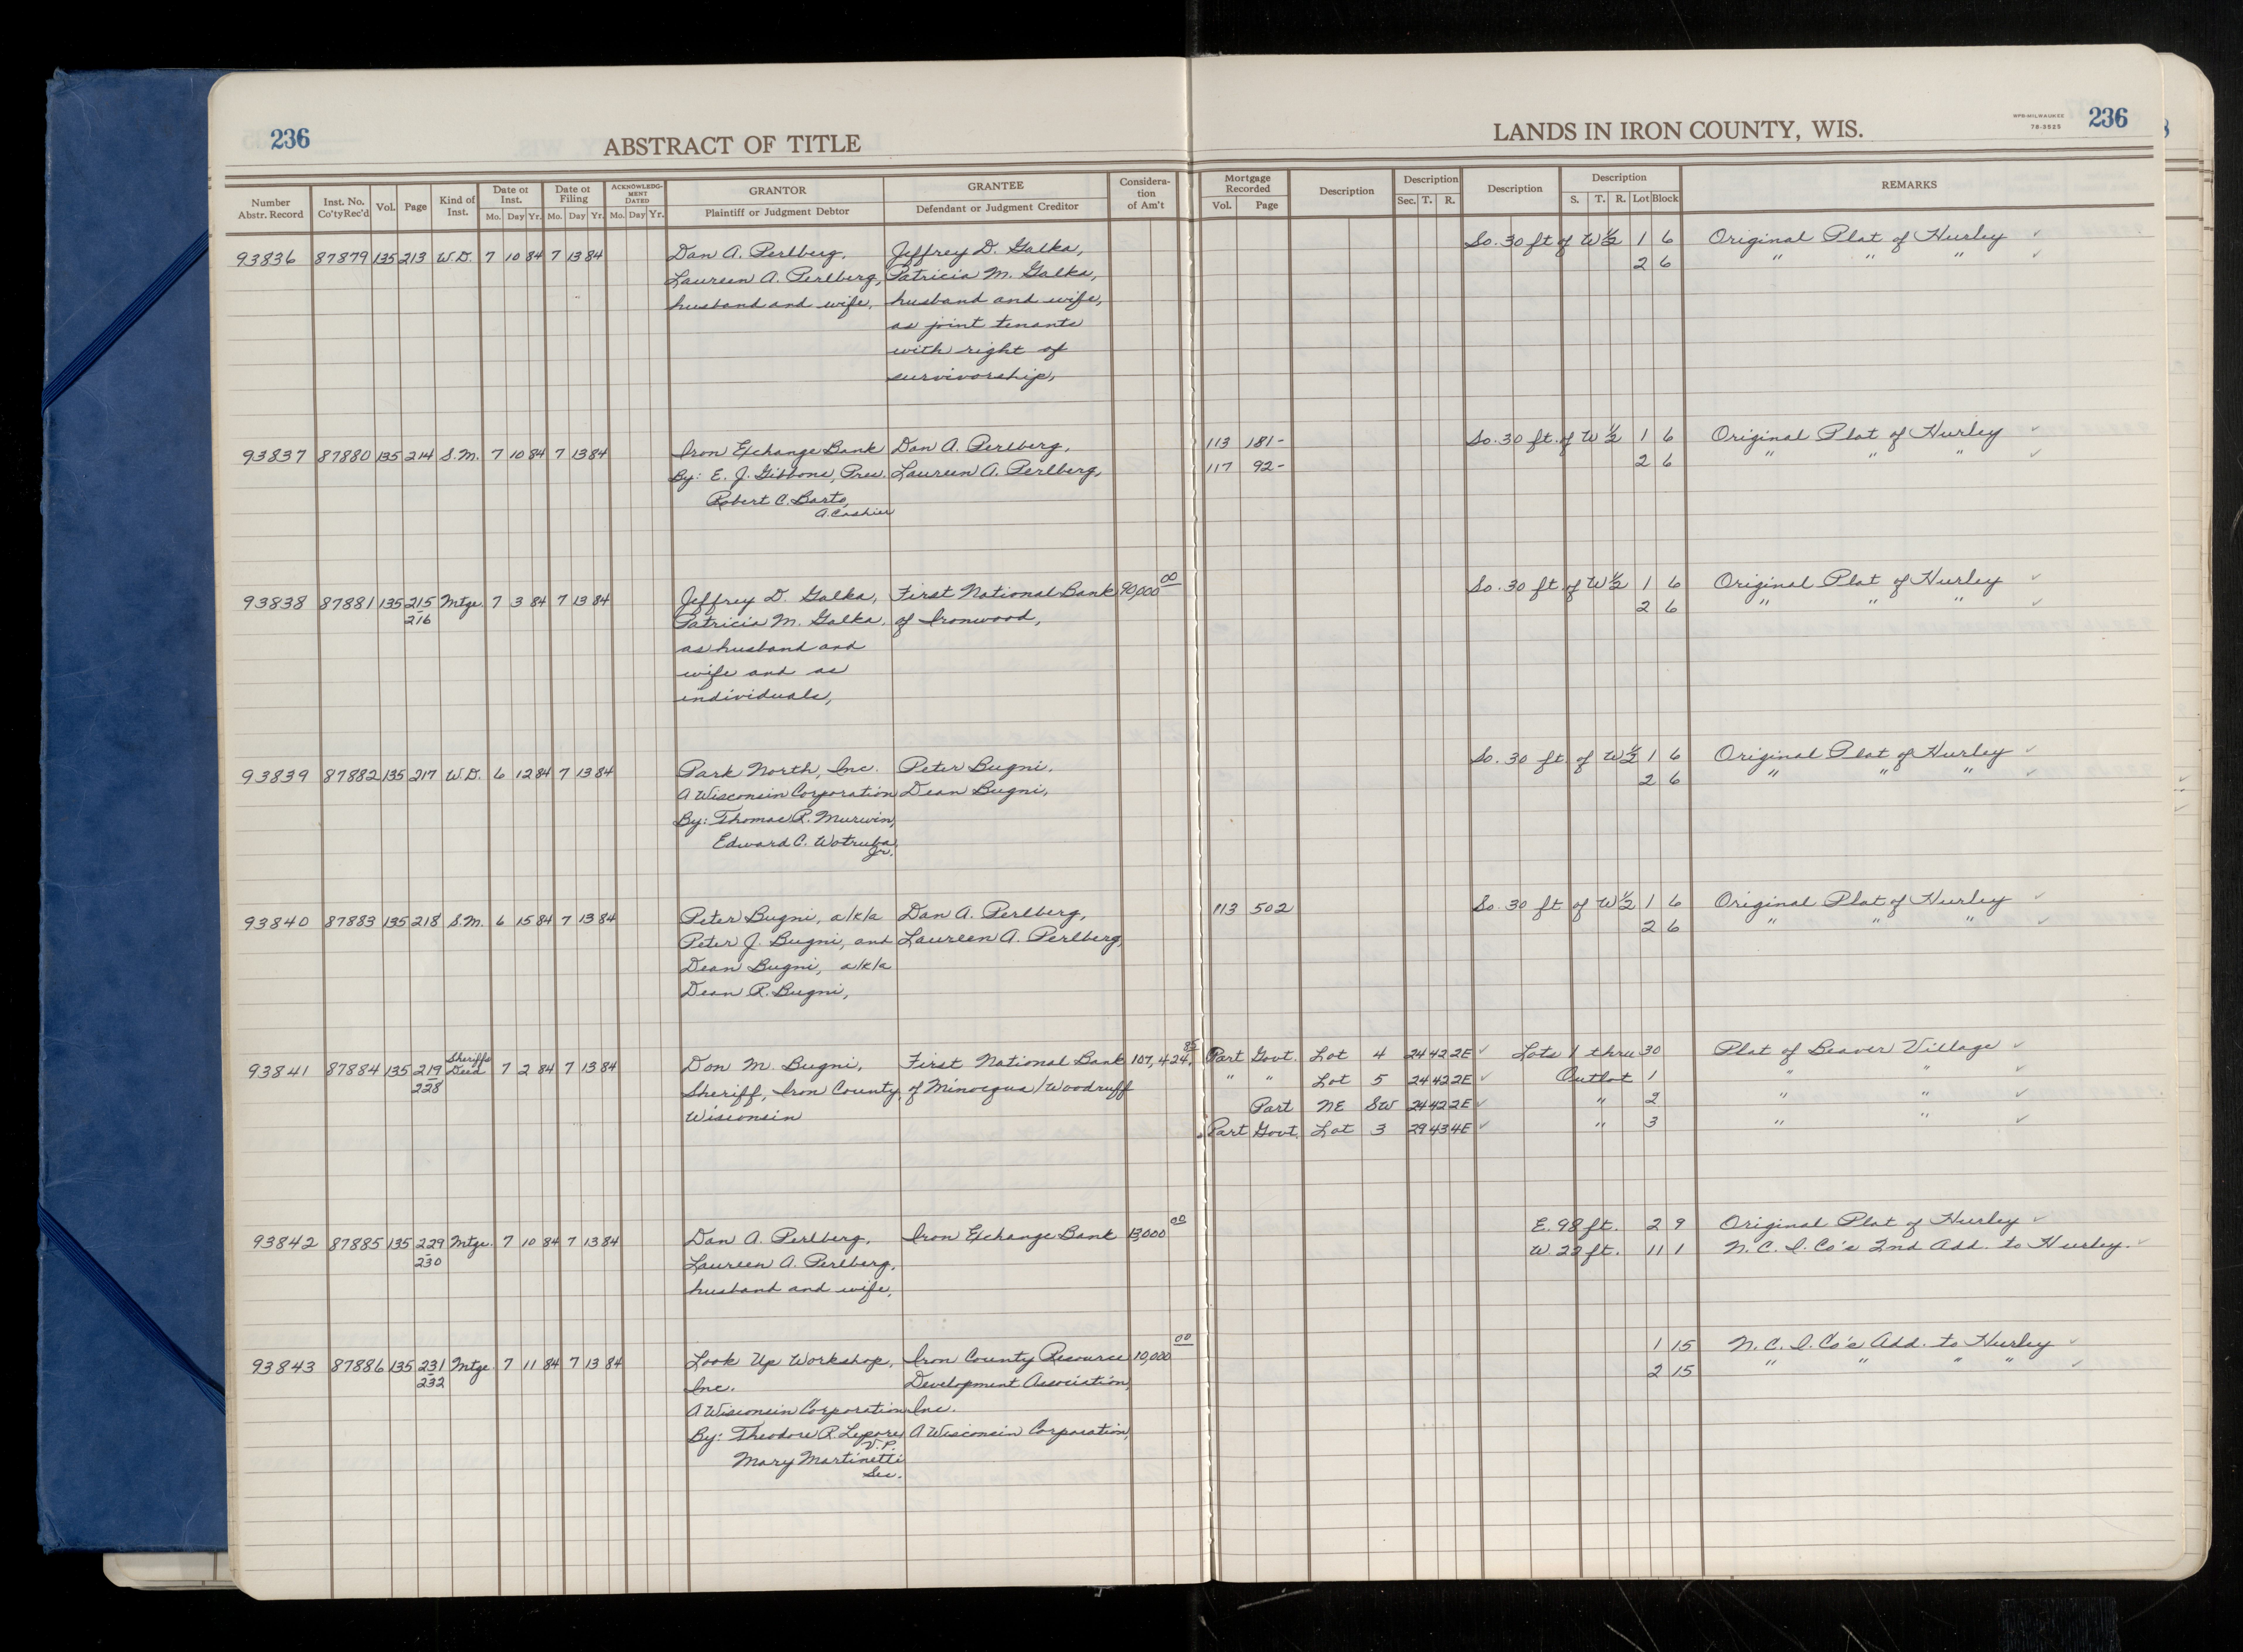 236
ABSTRACT OF TITLE
LANDS IN IRON COUNTY, WIS.
NPB-MILWAUKEE
78-3925
236
Number Abstr. Record | Inst. No. Co'ty Rec'd | Vol. | Page | Kind of Inst. | Date of Inst. Mo. Day Yr. | Date of Filing Mo. Day Yr. | ACKNOWLEDGMENT DATED Mo. Day Yr. | GRANTOR Plaintiff or Judgment Debtor | GRANTEE Defendant or Judgment Creditor | Consideration of Am't | Mortgage Recorded Vol. Page | Description | Description Sec. T. R. | Description | Description S. T. R. Lot Block | REMARKS
93836 87879 135 213 W.D. 7 10 84 7 13 84 Dan A. Perlberg, Jeffrey D. Galka, So. 30 ft of W ½ 1 6 Original Plat of Hurley ✓
Laureen A. Perlberg, Patricia M. Galka, 2 6 " " " ✓
husband and wife, husband and wife,
as joint tenants
with right of
survivorship,
93837 87880 135 214 S.M. 7 10 84 7 13 84 Iron Exchange Bank Dan A. Perlberg, 113 181- So. 30 ft. of W ½ 1 6 Original Plat of Hurley ✓
By: E. J. Gibbons, Pres. Laureen A. Perlberg, 117 92- 2 6 " " " ✓
Robert C. Barto,
A. Cashier
93838 87881 135 215 Mtge. 7 3 84 7 13 84 Jeffrey D. Galka, First National Bank 90,000 00 So. 30 ft. of W ½ 1 6 Original Plat of Hurley ✓
216 Patricia M. Galka, of Ironwood, 2 6 " " " ✓
as husband and
wife and as
individuals,
93839 87882 135 217 W.D. 6 12 84 7 13 84 Park North, Inc. Peter Bugni, So. 30 ft. of W ½ 1 6 Original Plat of Hurley ✓
A Wisconsin Corporation Dean Bugni, 2 6 " " " ✓
By: Thomas R. Murwin,
Edward C. Wotruba,
Jr.
93840 87883 135 218 S.M. 6 15 84 7 13 84 Peter Bugni, a/k/a Dan A. Perlberg, 113 502 So. 30 ft of W ½ 1 6 Original Plat of Hurley ✓
Peter J. Bugni, and Laureen A. Perlberg, 2 6 " " " ✓
Dean Bugni, a/k/a
Dean R. Bugni,
93841 87884 135 219 Sheriffs Deed 7 2 84 7 13 84 Don M. Bugni, First National Bank 107,424. 85 Part Govt. Lot 4 24 42 2E ✓ Lots 1 thru 30 Plat of Beaver Village ✓
228 Sheriff, Iron County, of Minocqua/Woodruff " " Lot 5 24 42 2E ✓ Outlot 1 " " ✓
Wisconsin Part NE SW 24 42 2E ✓ " 2 " " ✓
Part Govt. Lot 3 29 43 4E ✓ " 3 " " ✓
93842 87885 135 229 Mtge. 7 10 84 7 13 84 Dan A. Perlberg, Iron Exchange Bank 13,000 00 E. 98 ft. 2 9 Original Plat of Hurley ✓
230 Laureen A. Perlberg, W. 22 ft. 11 1 N. C. I. Co's 2nd Add. to Hurley. ✓
husband and wife,
93843 87886 135 231 Mtge 7 11 84 7 13 84 Look Up Workshop, Iron County Resource 10,000 00 1 15 N. C. I. Co's Add. to Hurley ✓
232 Inc. Development Association, 2 15 " " " " ✓
A Wisconsin Corporation Inc.
By: Theodore R. Lepore, A Wisconsin Corporation,
V.P.
Mary Martinetti
Sec.